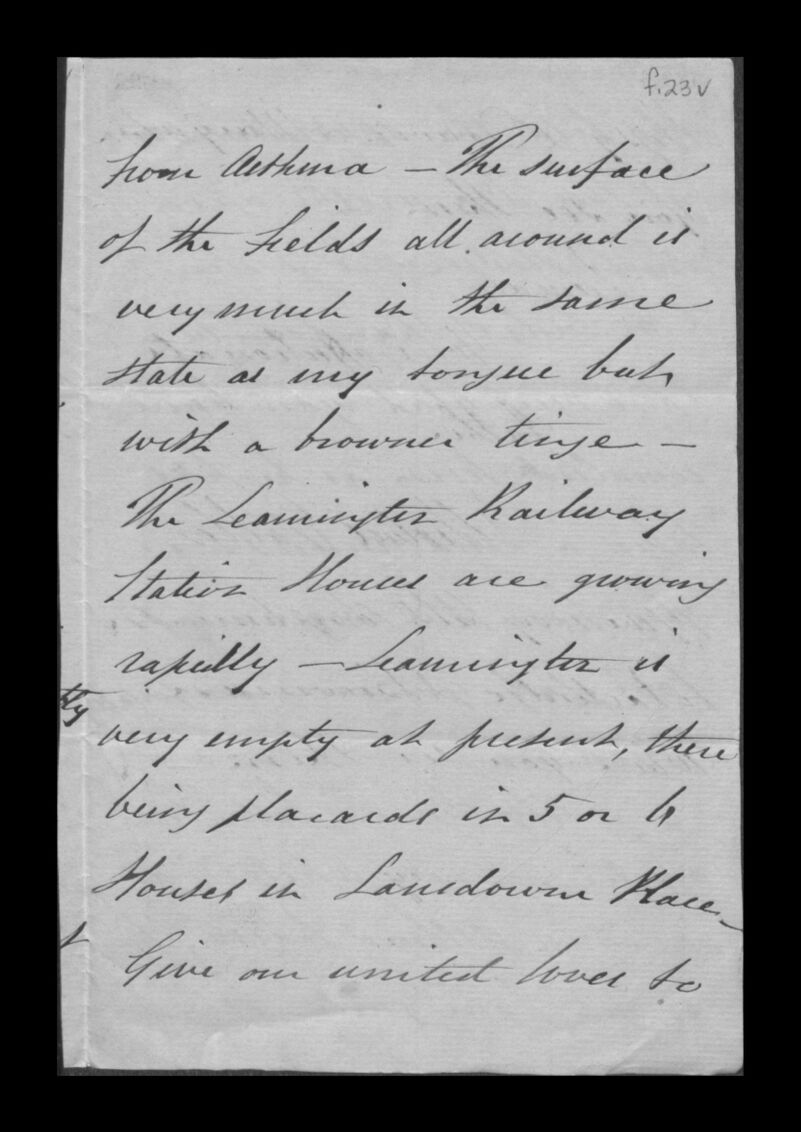 f.23v
from Asthma — The surface
of the fields all around is
very much in the same
state as my tongue but
with a browner tinge —
The Leamington Railway
Station Houses are growing
rapidly — Leamington is
very empty at present, there
being placards in 5 or 6
Houses in Lansdowne Place —
Give our united loves to